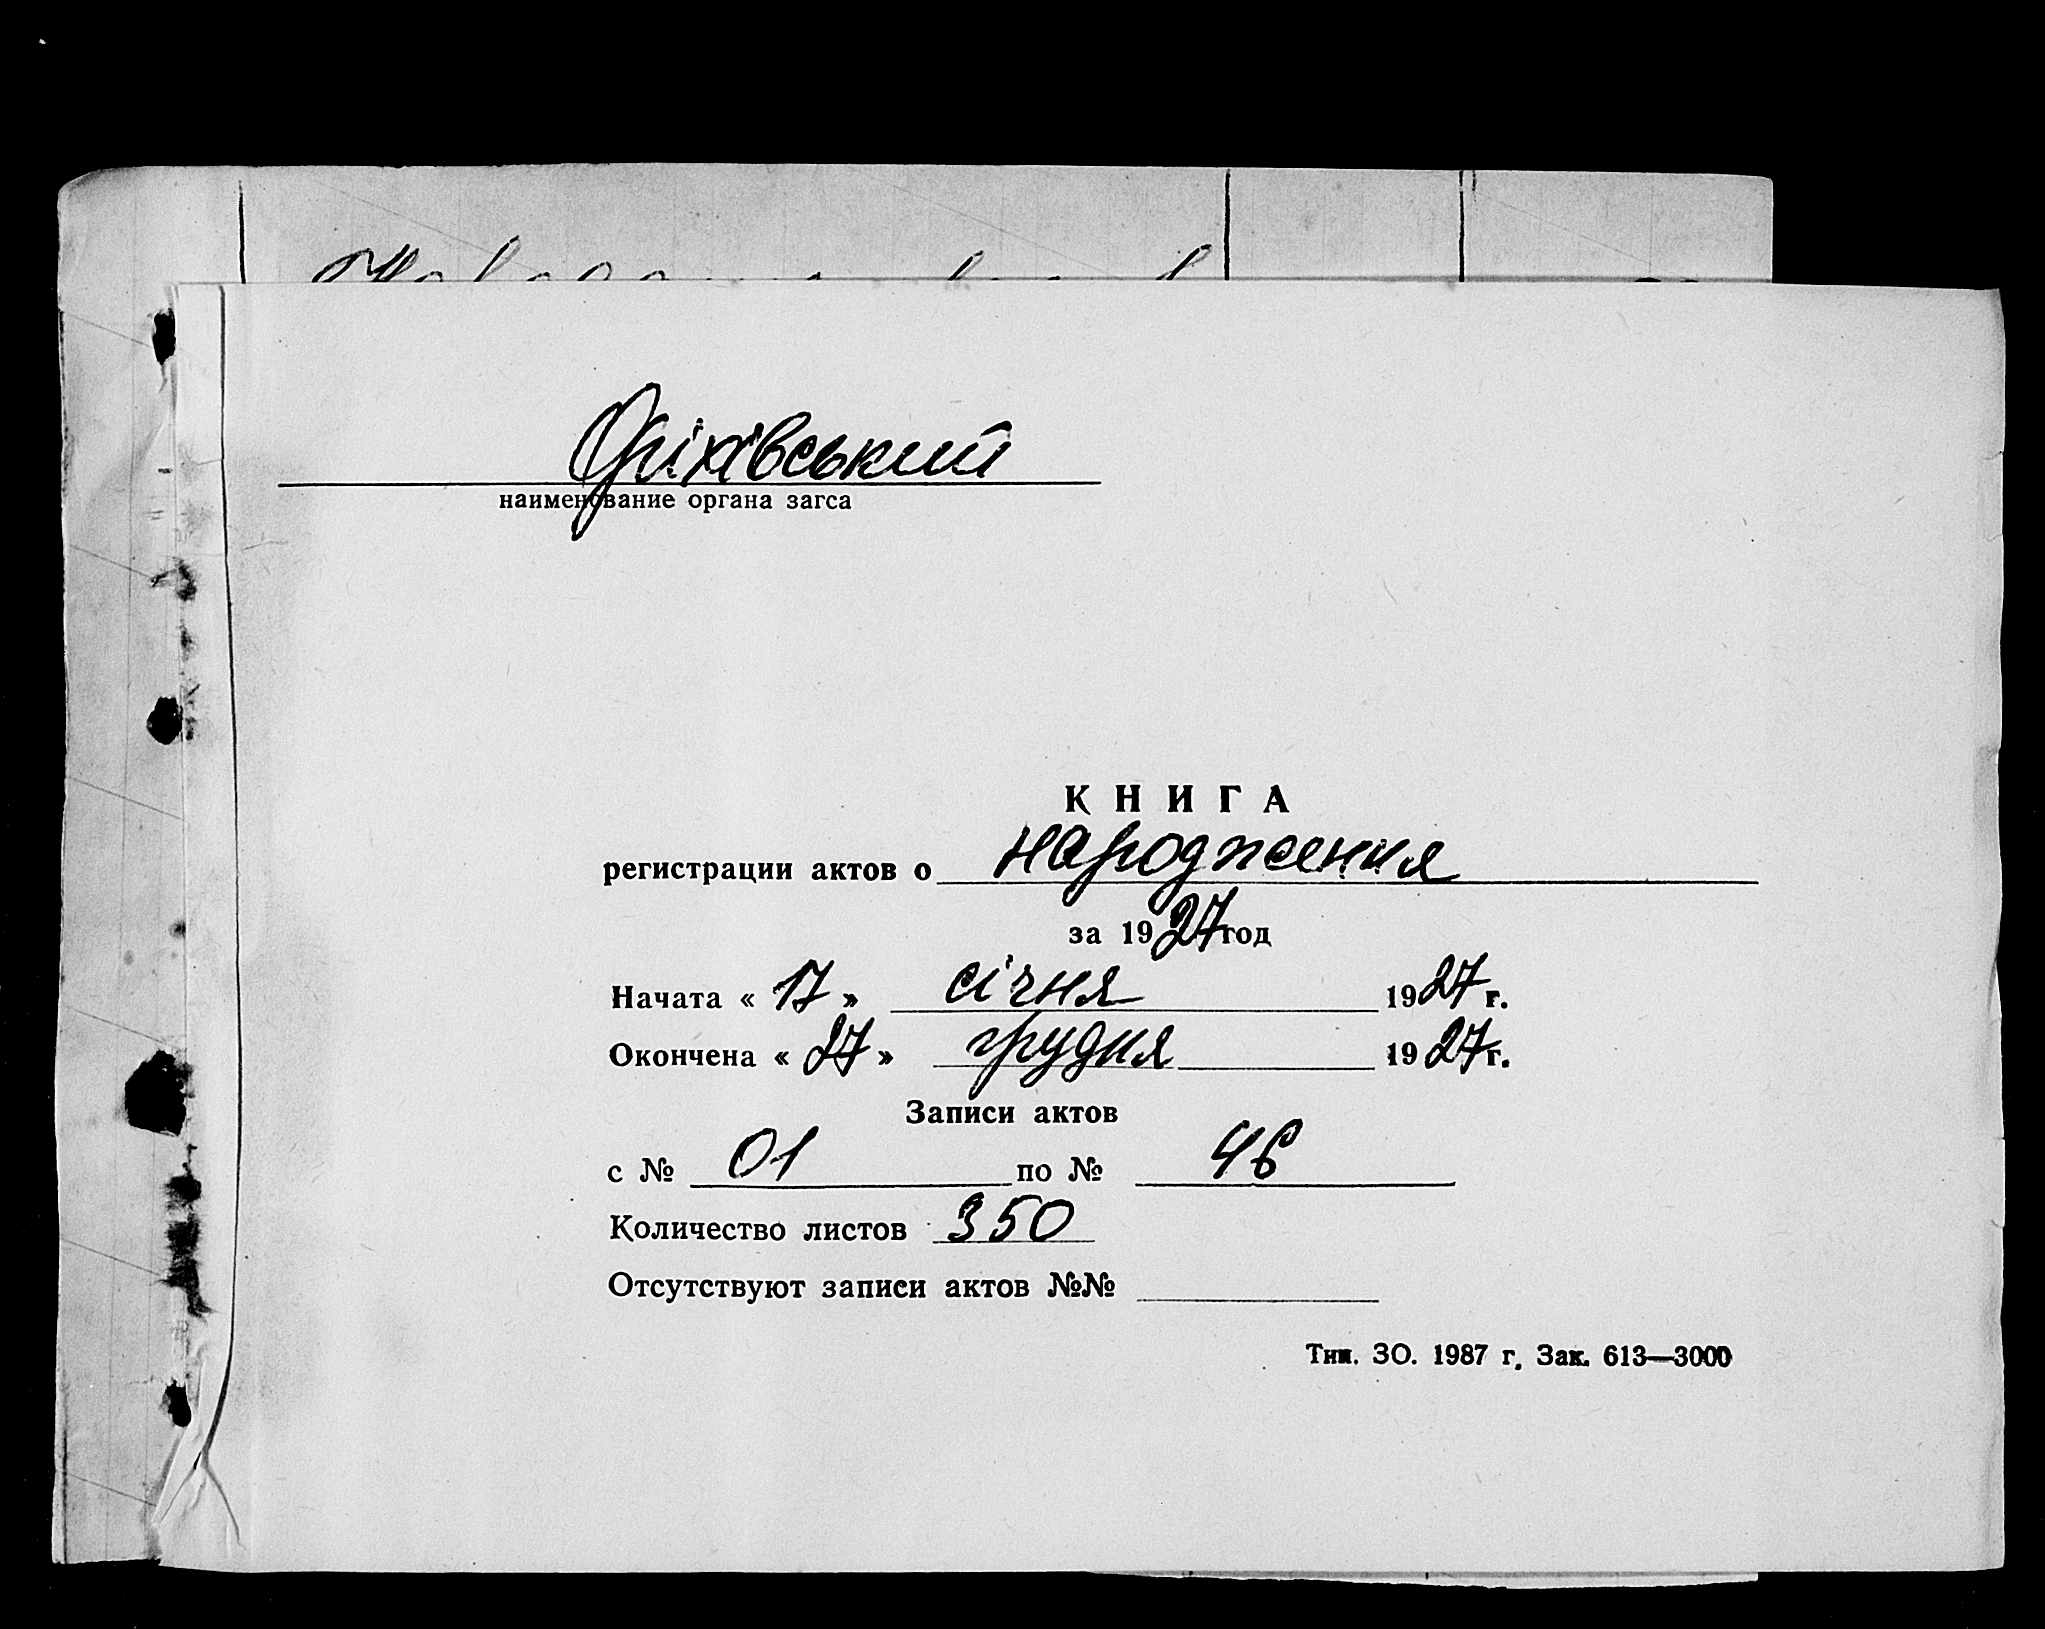 Оріхівський
наименование органа загса
КНИГА
регистрации актов о народження
за 1927 год
Начата « 17 » січня 1927 г.
Окончена « 27 » грудня 1927 г.
Записи актов
с № 01 по № 46
Количество листов 350
Отсутствуют записи актов №№
Тип. ЗО. 1987 г. Зак. 613—3000